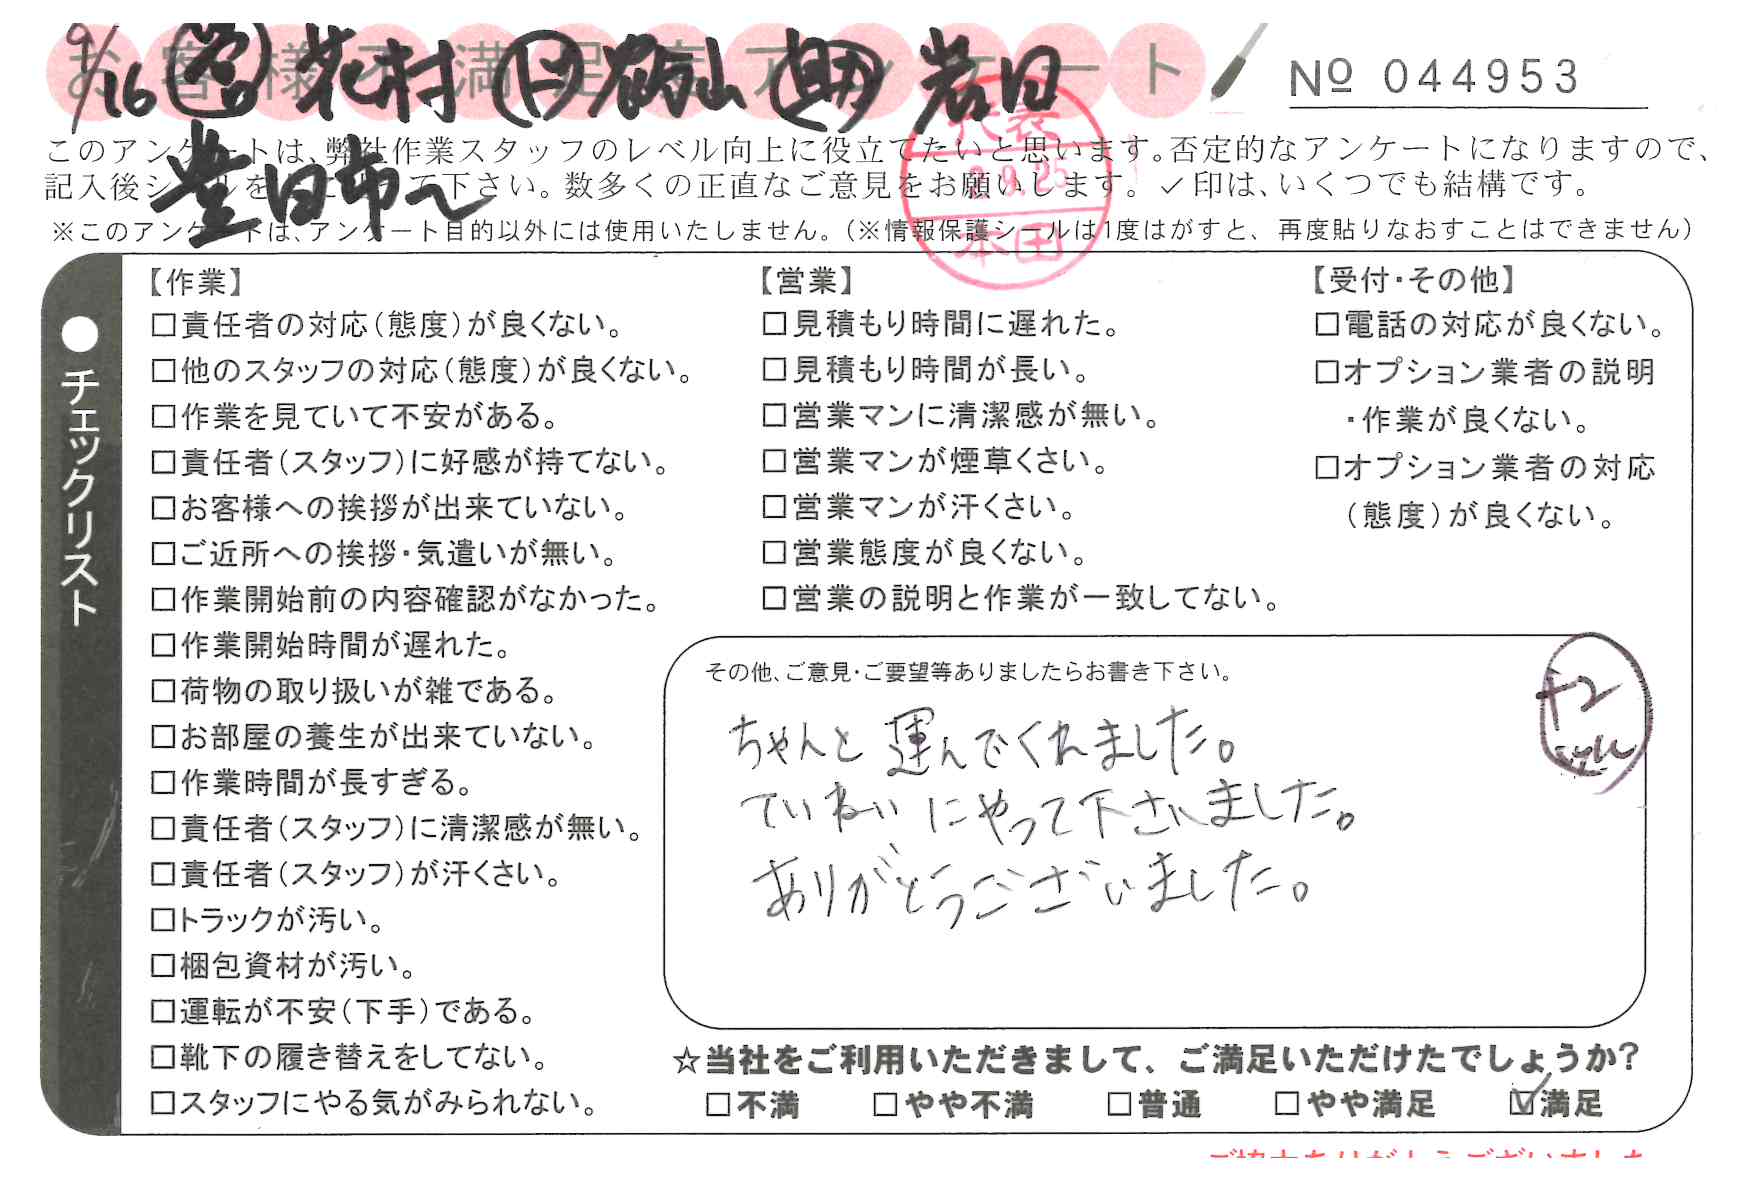 お客様不満足度アンケート
9/16 営 花村 ト 畠山 助 岩田
豊田市へ
№ 044953
このアンケートは、弊社作業スタッフのレベル向上に役立てたいと思います。否定的なアンケートになりますので、
記入後シールを て下さい。数多くの正直なご意見をお願いします。✓印は、いくつでも結構です。
※このアンケートは、アンケート目的以外には使用いたしません。(※情報保護シールは1度はがすと、再度貼りなおすことはできません)
代表
2.9.25
本田
●チェックリスト
【作業】
□責任者の対応(態度)が良くない。
□他のスタッフの対応(態度)が良くない。
□作業を見ていて不安がある。
□責任者(スタッフ)に好感が持てない。
□お客様への挨拶が出来ていない。
□ご近所への挨拶・気遣いが無い。
□作業開始前の内容確認がなかった。
□作業開始時間が遅れた。
□荷物の取り扱いが雑である。
□お部屋の養生が出来ていない。
□作業時間が長すぎる。
□責任者(スタッフ)に清潔感が無い。
□責任者(スタッフ)が汗くさい。
□トラックが汚い。
□梱包資材が汚い。
□運転が不安(下手)である。
□靴下の履き替えをしてない。
□スタッフにやる気がみられない。
【営業】
□見積もり時間に遅れた。
□見積もり時間が長い。
□営業マンに清潔感が無い。
□営業マンが煙草くさい。
□営業マンが汗くさい。
□営業態度が良くない。
□営業の説明と作業が一致してない。
【受付・その他】
□電話の対応が良くない。
□オプション業者の説明
・作業が良くない。
□オプション業者の対応
(態度)が良くない。
その他、ご意見・ご要望等ありましたらお書き下さい。
ちゃんと運んでくれました。
ていねいにやって下さいました。
ありがとうございました。
+2
☆当社をご利用いただきまして、ご満足いただけたでしょうか?
□不満 □やや不満 □普通 □やや満足 ☑満足
ご協力ありがとうございました